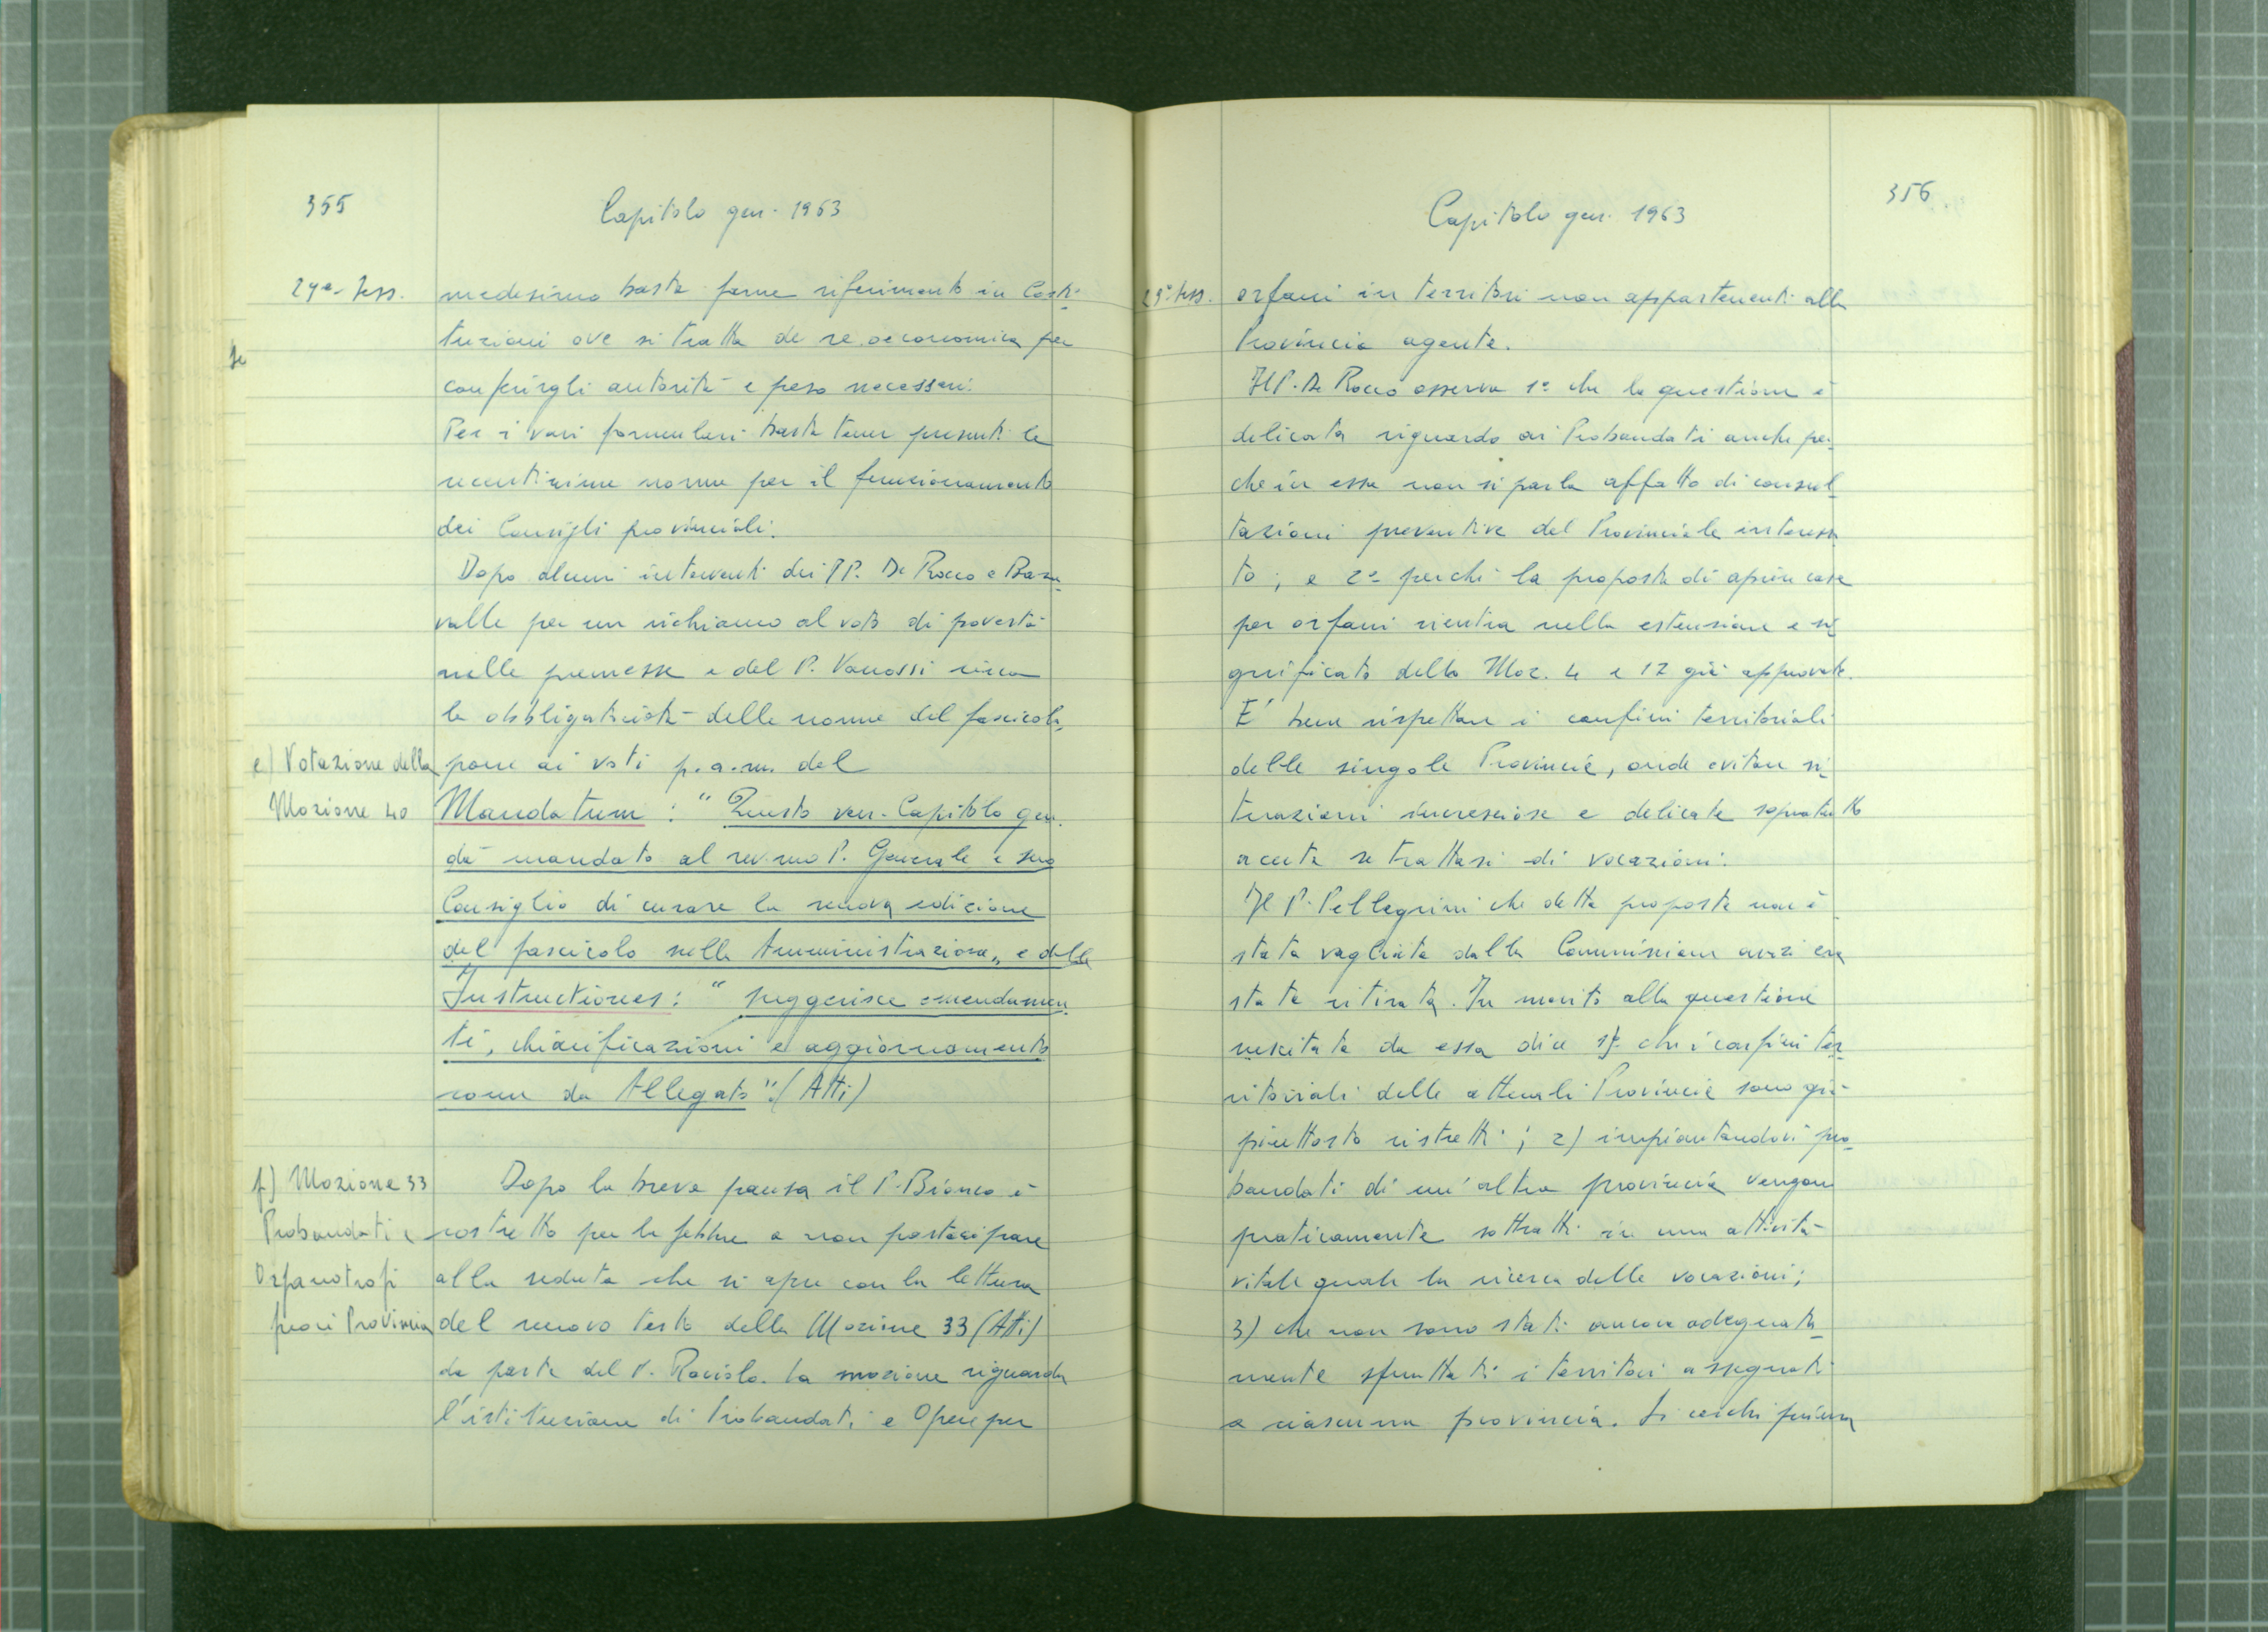 355
Capitolo gen. 1963
29ª Sess.
medesimo basta farne riferimento in Costi-
tuzioni ove si tratta de re oeconomica per
conferirgli autorità e peso necessari.
Per i vari formulari basta tener presenti le
recentissime norme per il funzionamento
dei Consigli provinciali.
Dopo alcuni interventi dei PP. De Rocco e
valle per un richiamo al voto di povertà
nelle premesse e del P. Vanossi circa
la obbligatorietà delle norme del fascicolo,
e) Votazione della
Mozione 40
pone ai voti p.a.m. del
Mandatum: "Questo ven. Capitolo gen.
dà mandato al rev.mo P. Generale e suo
Consiglio di curare la nuova edizione
del fascicolo sulla Amministrazione" e delle
Instructiones: "suggerisce emendamen
ti, chiarificazioni e aggiornamento
come da Allegato" (Atti)
f) Mozione 33
Probandati e
Orfanotrofi
fuori Provincia
Dopo la breve pausa il P. Bianco è
costretto per la febbre a non partecipare
alla seduta che si apre con la lettura
del nuovo testo della Mozione 33 (Atti)
da parte del P. Raviolo. La mozione riguarda
l'istituzione di Probandati e Opere per
356
Capitolo gen. 1963
29ª Sess.
orfani in territori non appartenenti alla
Provincia agente.
Il P. De Rocco osserva 1° che la questione è
delicata riguardo ai Probandati anche per
che in essa non si parla affatto di consul
tazioni preventive del Provinciale interessa
to; e 2° perché la proposta di aprire case
per orfani rientra nella estensione e si
gnificato della Moz. 4 e 12 già approvate.
E' bene rispettare i confini territoriali
delle singole Provincie, onde evitare si
tuazioni incresciose e delicate sopratutto
acuta se trattasi di vocazioni.
Il P. Pellegrini che detta proposta non è
stata vagliata dalla Commissione anzi era
stata ritirata. In merito alla questione
suscitata da essa dice 1) che i confini ter
ritoriali delle attuali Provincie sono già
piuttosto ristretti; 2) impiantandovi pro
bandati di un'altra provincia vengono
praticamente sottratti in una attività
vitale quale la ricerca delle vocazioni;
3) che non sono stati ancora adeguata
mente sfruttati i territori assegnati
a ciascuna provincia. Si cerchi prima